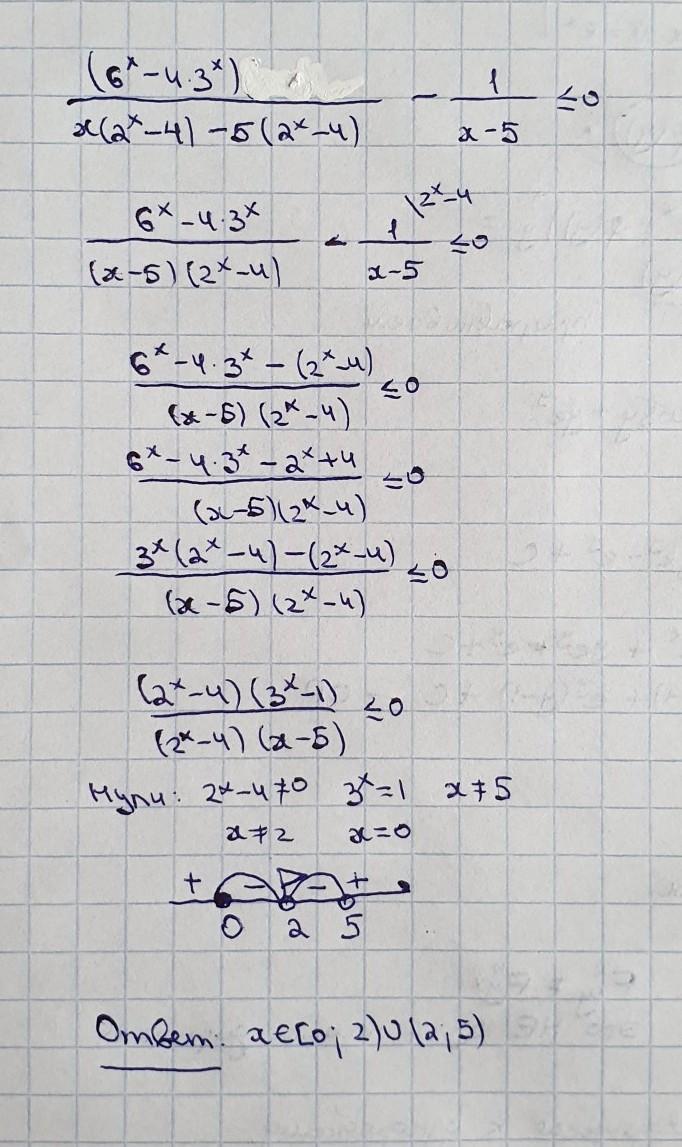 (6ˣ-4·3ˣ)/(x(2ˣ-4)-5(2ˣ-4)) - 1/(x-5) ≤0
(6ˣ-4·3ˣ)/((x-5)(2ˣ-4)) - 1\2ˣ-4/(x-5) ≤0
(6ˣ-4·3ˣ-(2ˣ-4))/((x-5)(2ˣ-4)) ≤0
(6ˣ-4·3ˣ-2ˣ+4)/((x-5)(2ˣ-4)) ≤0
(3ˣ(2ˣ-4)-(2ˣ-4))/((x-5)(2ˣ-4)) ≤0
((2ˣ-4)(3ˣ-1))/((2ˣ-4)(x-5)) ≤0
Нули: 2ˣ-4≠0 3ˣ=1 x≠5
x≠2 x=0
+ - - +
0 2 5
Ответ: x∈[0; 2)∪(2; 5)